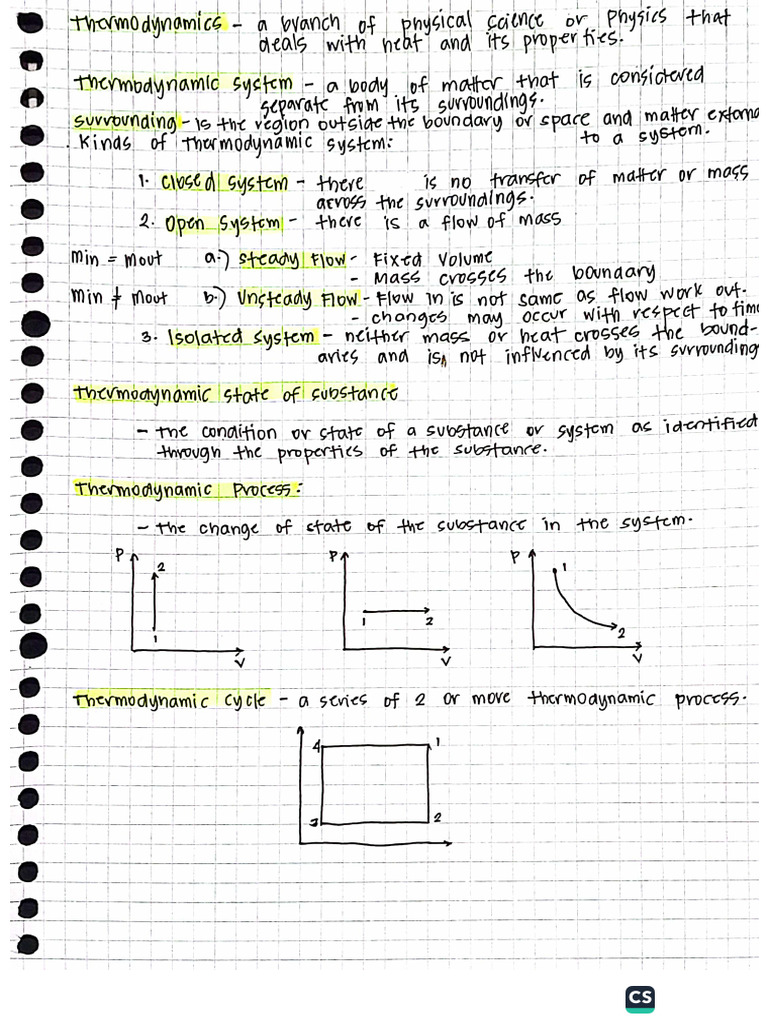 Thermodynamics - a branch of physical science or Physics that
deals with heat and its properties.
Thermodynamic system - a body of matter that is considered
separate from its surroundings.
surrounding - is the region outside the boundary or space and matter externa
Kinds of thermodynamic system: to a system.
1. closed system - there is no transfer of matter or mass
across the surroundings.
2. Open System - there is a flow of mass
min = mout a.) steady Flow - Fixed Volume
- Mass crosses the boundary
min ≠ mout b.) Unsteady Flow - Flow in is not same as flow work out.
- changes may occur with respect to time
3. Isolated system - neither mass or heat crosses the bound-
aries and is not influenced by its surrounding
Thermodynamic state of substance
- the condition or state of a substance or system as identified
through the properties of the substance.
Thermodynamic Process:
- the change of state of the substance in the system.
P 2 1 V
P 1 2 V
P 1 2 V
Thermodynamic cycle - a series of 2 or more thermodynamic process.
4 1
3 2
CS